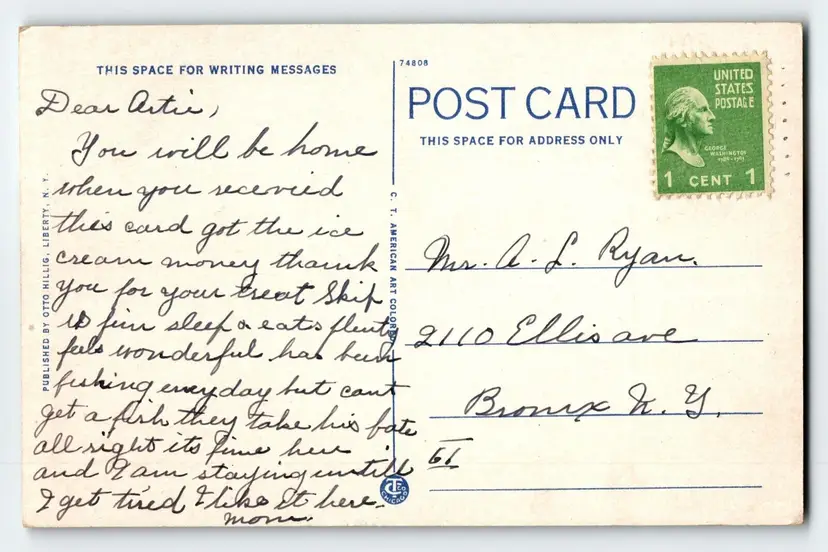 THIS SPACE FOR WRITING MESSAGES
Dear Artie,
You will be home
when you recevied
this card got the ice
cream money thank
you for your treat Skip
is fine sleep & eats plenty
feels wonderful has been
fishing everyday but cant
get a fish they take his bate
all right its fine here
and I am staying untill
I get tired I like it here.
mom.
PUBLISHED BY OTTO HILLIG, LIBERTY, N. Y.
74808
C. T. AMERICAN ART COLORED
CHICAGO
POST CARD
THIS SPACE FOR ADDRESS ONLY
UNITED
STATES
POSTAGE
GEORGE
WASHINGTON
1 CENT 1
Mr. A. L. Ryan.
2110 Ellis ave
Bronix N. Y.
61